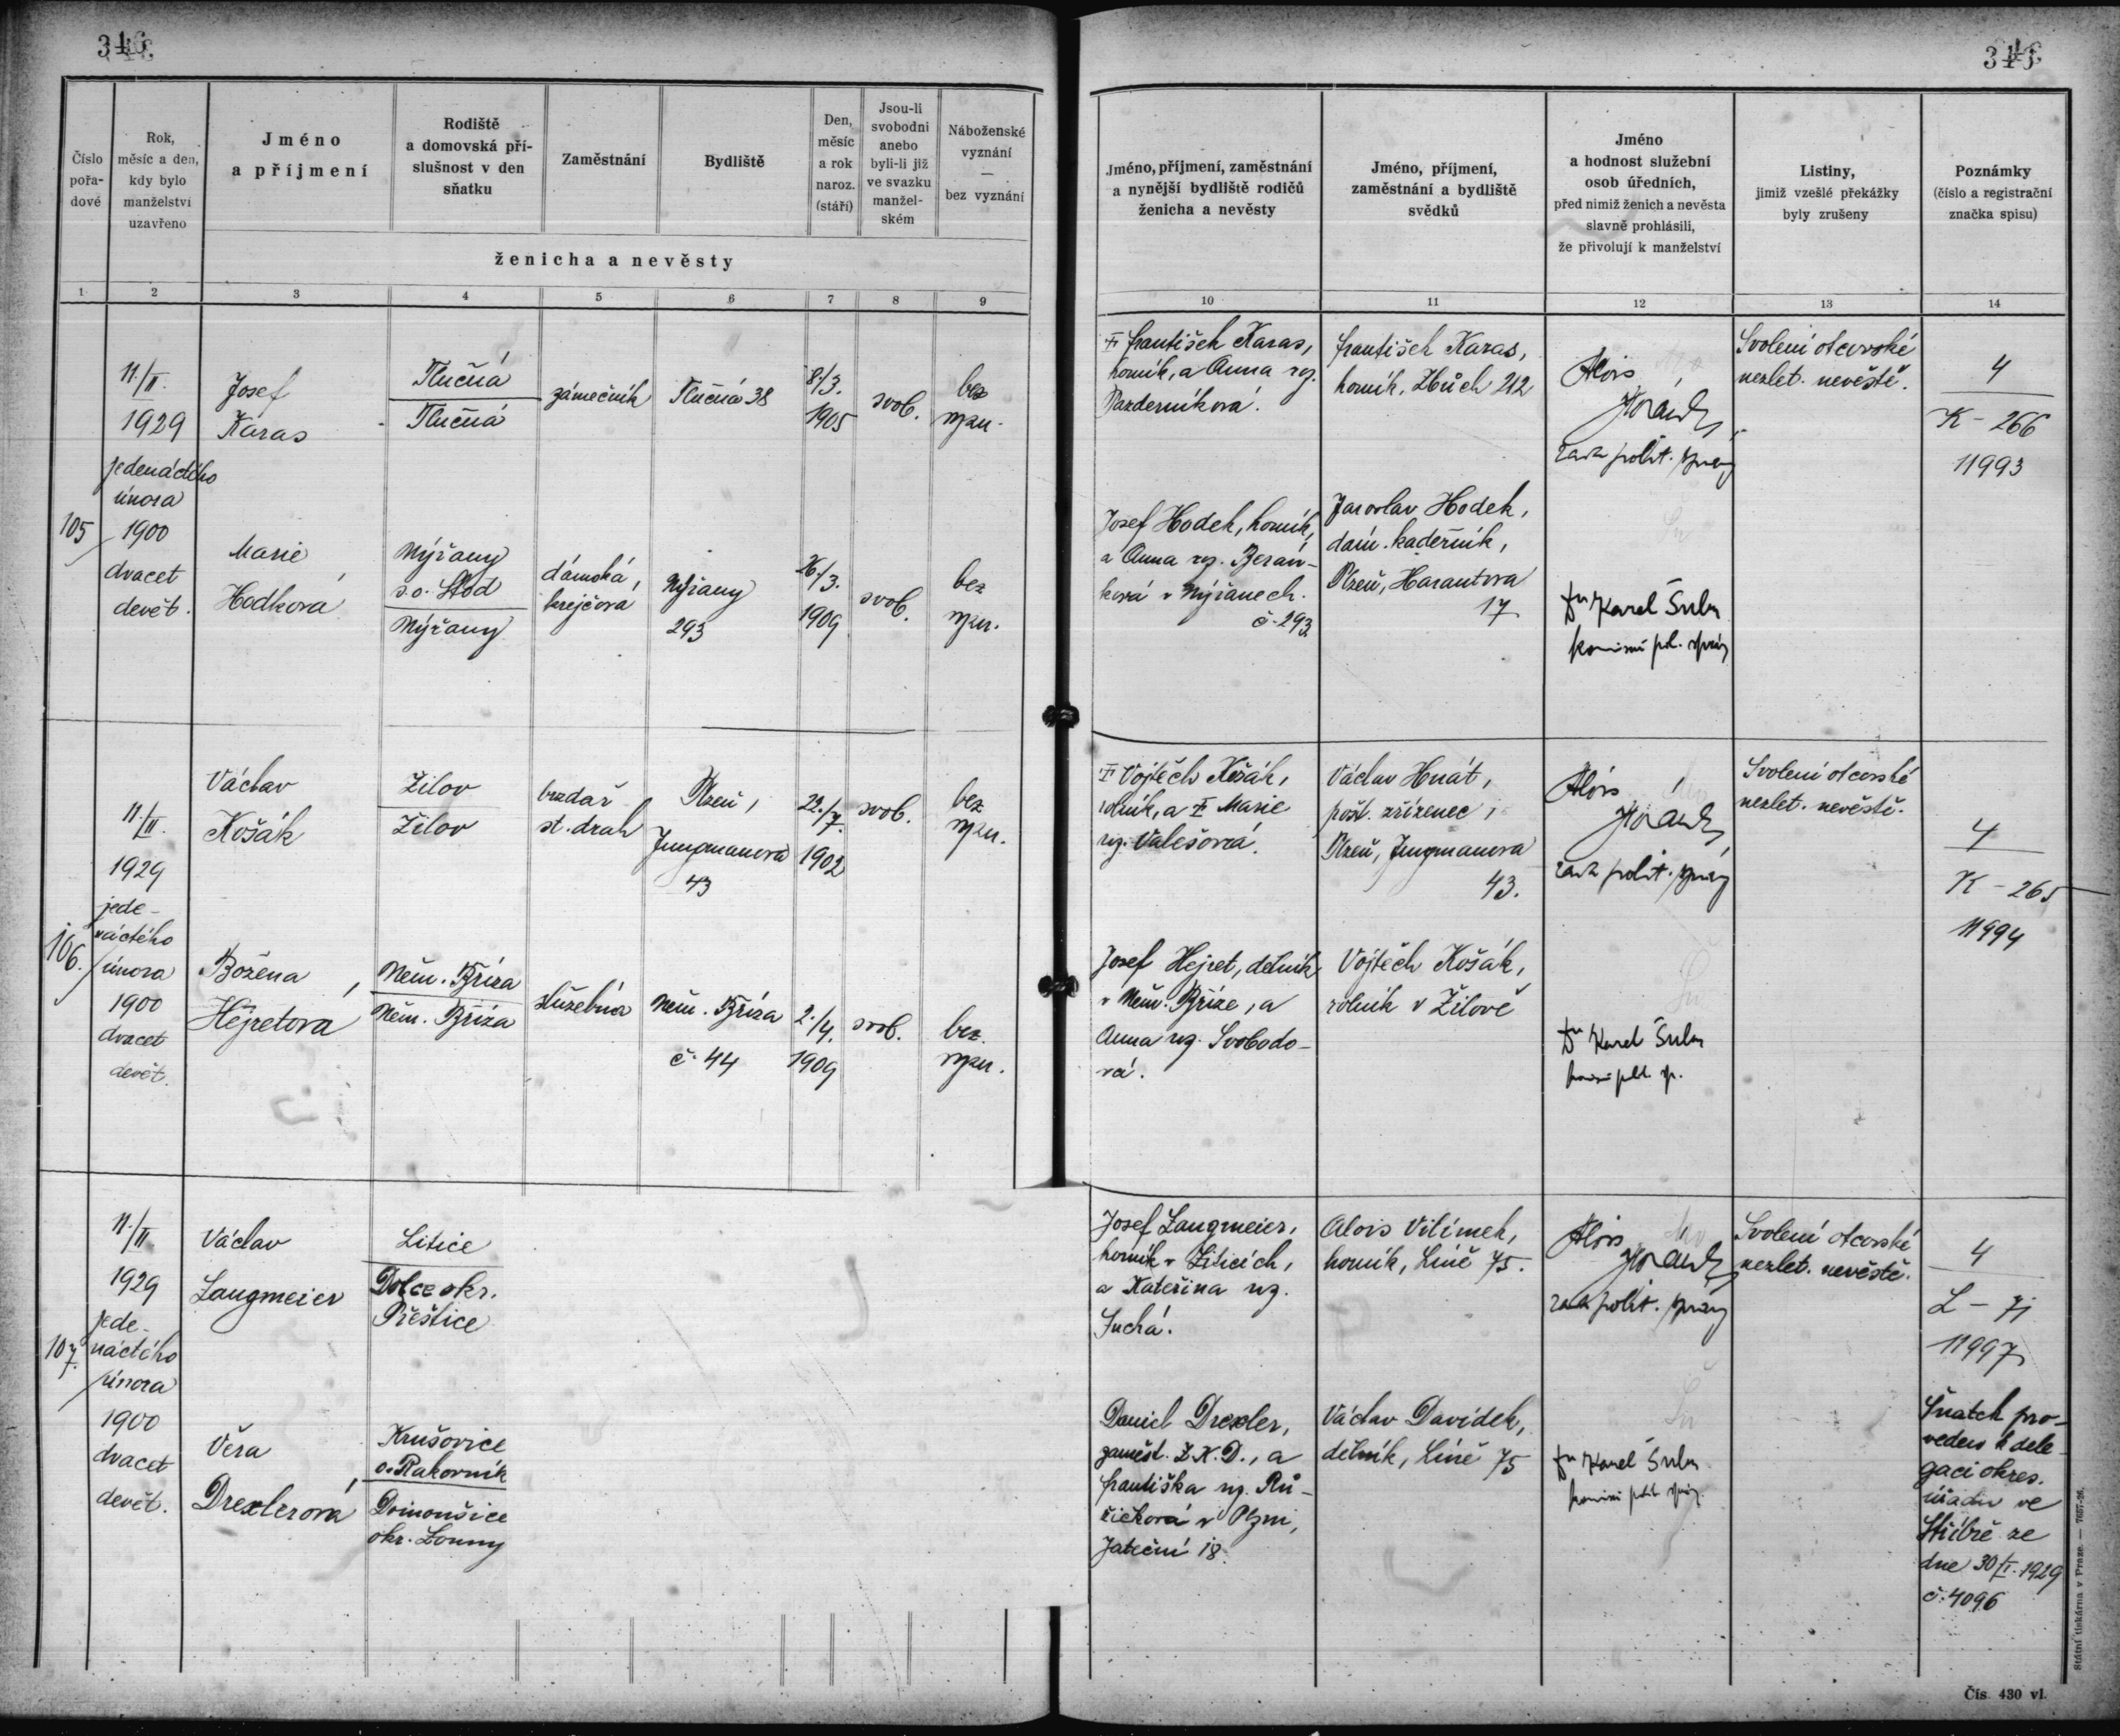 Číslo pořa- dové
Rok, měsíc a den, kdy bylo manželství uzavřeno
Jméno a příjmení
Rodiště a domovská pří- slušnost v den sňatku
Zaměstnání
Bydliště
Den, měsíc a rok naroz. (stáří)
Jsou-li svobodni anebo byli-li již ve svazku manžel- ském
Náboženské vyznání — bez vyznání
ženicha a nevěsty
Jméno, příjmení, zaměstnání a nynější bydliště rodičů ženicha a nevěsty
Jméno, příjmení, zaměstnání a bydliště svědků
Jméno a hodnost služební osob úředních, před nimiž ženich a nevěsta slavně prohlásili, že přivolují k manželství
Listiny, jimiž vzešlé překážky byly zrušeny
Poznámky (číslo a registrační značka spisu)
1 2 3 4 5 6 7 8 9 10 11 12 13 14
105
11./II.
1929
jedenáctého
února
1900
dvacet
devět.
Josef
Karas
Tlučná
Tlučná
zámečník
Tlučná 38
8/3.
1905
svob.
bez
vyzn.
Marie
Hodková
Nýřany
s.o. Stod
Nýřany
dámská
krejčová
Nýřany
293
26./3.
1909
svob.
bez
vyzn.
František Karas,
horník, a Anna roz.
Pazderníková.
František Karas,
horník, Zbůch 212
Alois
rada polit. správy
Svolení otcovské
nezlet. nevěstě.
4
K - 266
11993
Josef Hodek, horník,
a Anna roz. Berán-
ková v Nýřanech.
č. 293.
Jaroslav Hodek,
dám. kadeřník,
Plzeň, Harantova
17
Dr Karel Šuba
komisař pol. správy
106.
11./II.
1929
jede-
náctého
února
1900
dvacet
devět.
Václav
Košák
Žilov
Žilov
brzdař
st. drah
Plzeň,
Jungmanova
43
22./7.
1902
svob.
bez
vyzn.
Božena
Hejretova
Něm. Bříza
Něm. Bříza
služebná
Něm. Bříza
č. 44
2./4.
1909
svob.
bez.
vyzn.
Vojtěch Košák,
rolník, a Marie
roz. Valešová.
Václav Hnát,
pošt. zřízenec,
Plzeň, Jungmanova
43.
Alois
rada polit. správy
Svolení otcovské
nezlet. nevěstě.
4
K - 265
11994
Josef Hejret, dělník
v Něm. Bříze, a
Anna roz. Svobodo-
vá.
Vojtěch Košák,
rolník v Žilově
Dr Karel Šuba
107.
11./II
1929
jede-
náctého
února
1900
dvacet
devět.
Václav
Langmeier
Litice
Dolce okr.
Přeštice
Věra
Drexlerová
Krušovice
o. Rakovník
Domoušice
okr. Louny
Josef Langmeier,
horník v Liticích,
a Kateřina roz.
Suchá.
Alois Vilímek,
horník, Líně 75.
Alois
rada polit. správy
Svolení otcovské
nezlet. nevěstě.
4
11997
Daniel Drexler,
zaměst. Z.K.D., a
Františka roz. Rů-
žičková v Plzni,
Jateční 18.
Václav Davídek,
dělník, Líně 75
Dr Karel Šuba
Sňatek pro-
veden k dele-
gaci okres.
úřadu ve
Stříbře ze
dne 30/I. 1929
č. 4096
Státní tiskárna v Praze. — 7657-26.
Čís. 430 vl.